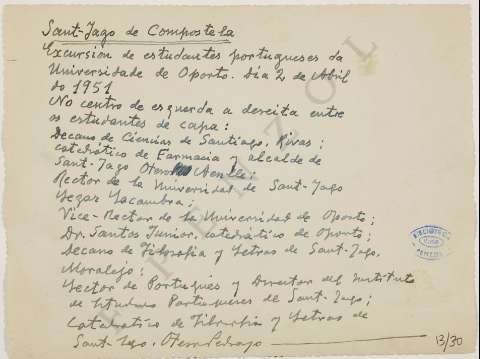 Sant-Jago de Compostela
Excursion de estudantes portugueses da
Universidade de Oporto. Dia 2 de Abril
do 1951
No centro de esquerda a dereita entre
os estudantes de capa:
Decano de Ciencias de Santiago, Rivas;
catedrático de Farmacia y alcalde de
Sant-Jago Otero Aenlle;
Rector de la Universidad de Sant-Jago
Legaz Lacambra;
Vice-Rector de la Universidad de Oporto;
Dr. Santos Junior, catedrático de Oporto;
Decano de Filosofia y Letras de Sant-Jago,
Moralejo;
Lector de Portugués y Director del Instituto
de Estudios Portugueses de Sant-Jago;
Catedratico de Filosofia y Letras de
Sant-Jago, Otero Pedrayo
13/30
BIBLIOTECA
PENZOL
PENZOL